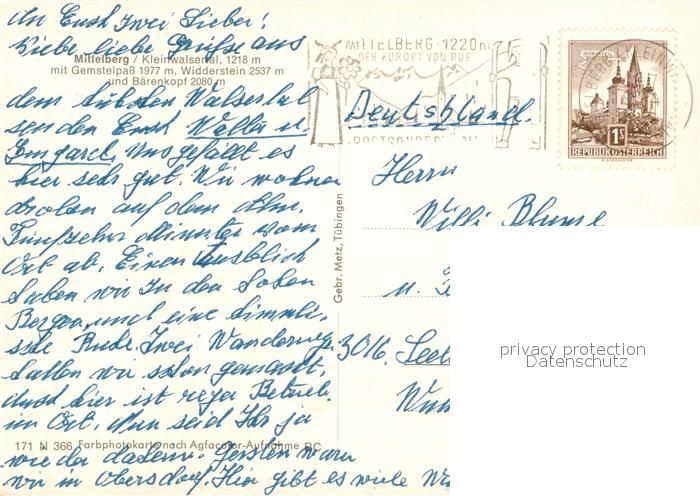 An Euch zwei Lieben!
Liebe, liebe Grüße aus
Mittelberg / Kleinwalsertal, 1218 m
mit Gemstelpaß 1977 m, Widderstein 2537 m
und Bärenkopf 2080 m
dem schönen Walsertal
senden Euch Walter u.
Irmgard. Uns gefällt es
hier sehr gut. Wir wohnen
droben auf dem
Fünfzehn Minuten vom
Ort ab. Einen Ausblick
haben wir In den hohen
Bergen, und eine himmli-
sche Ruhe. Zwei Wanderunge
hatten wir schon gemacht,
auch hier ist reger Betrieb
im Ort. Nun seid Ihr ja
171 N 366 Farbphotokarte nach Agfacolor-Aufnahme RC
wieder daheim. Gestern waren
wir in Obersdorf. Hier gibt es viele
Gebr. Metz, Tübingen
MITTELBERG · 1220 m
DER KURORT VON RUF
MARIAZELL
1 S
REPUBLIK ÖSTERREICH
Deutschland.
Herrn
Willi Blume
u.
3016
privacy protection
Datenschutz